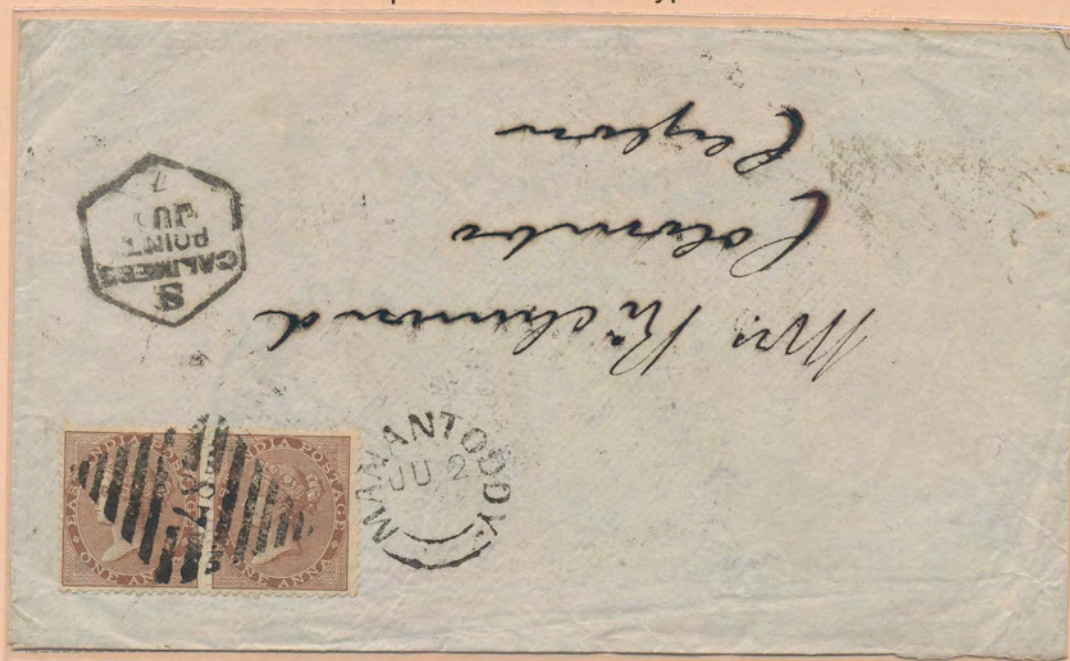 Mrs. Richmond
Colombo
Ceylon
S
CALIMERE
POINT
JU
7
MANANTODDY
JU 2
EAST INDIA POSTAGE
ONE ANNA
EAST INDIA POSTAGE
ONE ANNA